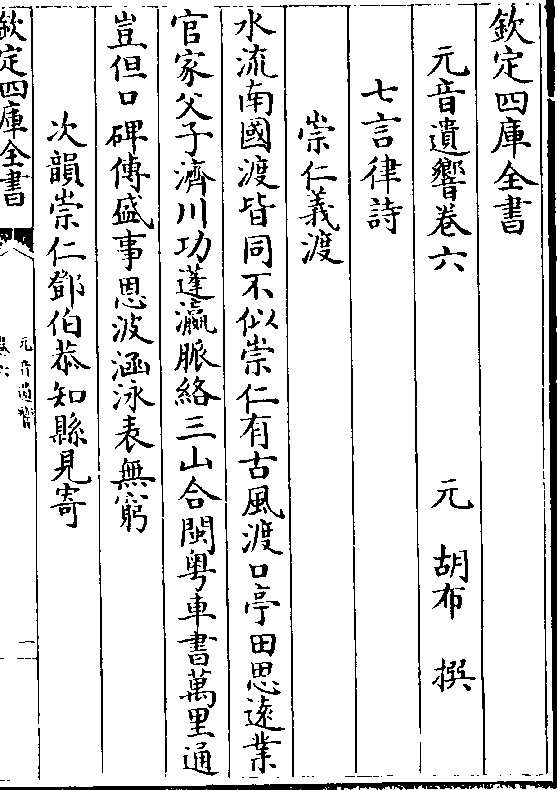 欽定四庫全書
元音遺響卷六
元 胡布 撰
七言律詩
崇仁義渡
水流南國渡皆同不似崇仁有古風渡口亭田思逺業
官家父子濟川功蓬瀛脈絡三山合閩粤車書萬里通
豈但口碑傳盛事恩波涵泳表無窮
次韻崇仁鄧伯恭知縣見寄
欽定四庫全書
元音遺響
卷六
一